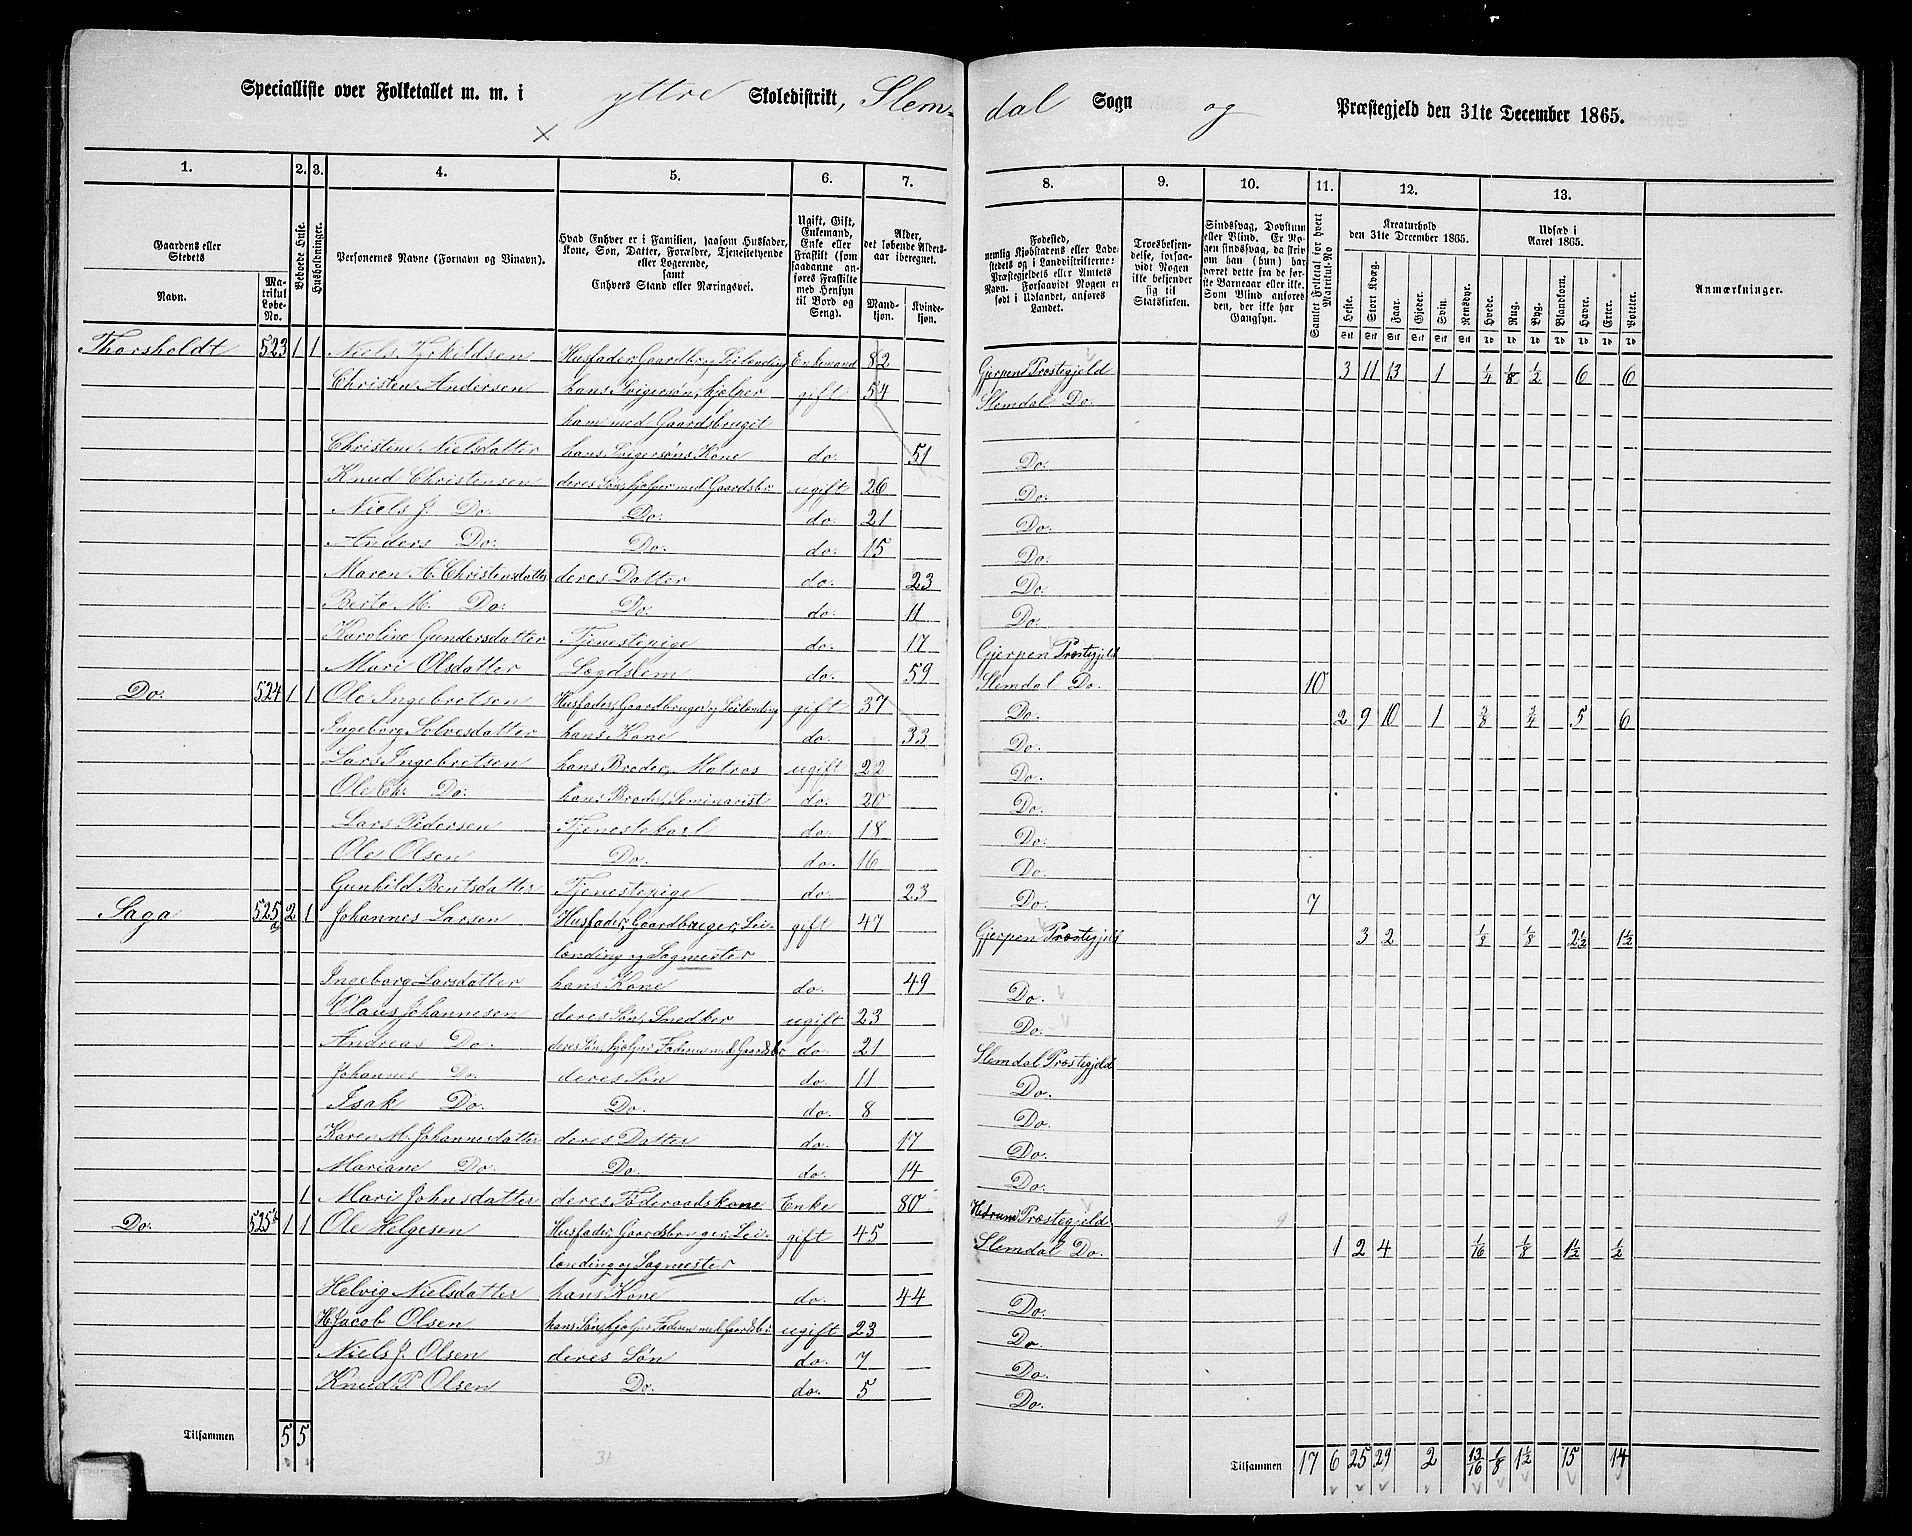 Specialliste over Folketallet m. m. i yttre Skoledistrikt, Slem-
dal Sogn og Præstegjeld den 31te December 1865.
1. 2. 3. 4. 5. 6. 7. 8. 9. 10. 11. 12. 13.
Gaardens eller Stedets
Navn.
Matrikul Løbe-No.
Beboede Huse.
Husholdninger.
Personernes Navne (Fornavn og Binavn).
Hvad Enhver er i Familien, saasom Husfader, Kone, Søn, Datter, Forældre, Tjenestetyende eller Logerende, samt Enhvers Stand eller Næringsvei.
Ugift, Gift, Enkemand, Enke eller Fraskilt (som saadanne anføres Fraskilte med Hensyn til Bord og Seng).
Alder, det løbende Alders-aar iberegnet.
Mandkjøn.
Kvindekjøn.
Fødested, nemlig Kjøbstadens eller Ladestedets og i Landdistrikterne: Præstegjeldets eller Amtets Navn. Forsaavidt Nogen er født i Udlandet, anføres Landet.
Troesbekjendelse, forsaavidt Nogen ikke bekjender sig til Statskirken.
Sindssvag, Døvstum eller Blind. Er Nogen sindssvag, da skrives om han (hun) har været dette fra de første Barneaar eller ikke. Som Blind anføres den, der ikke har Gangsyn.
Samlet Folketal for hvert Matrikul-No
Kreaturhold den 31te December 1865.
Heste. Stort Kvæg. Faar. Gjeder. Svin. Rensdyr.
Udsæd i Aaret 1865.
Hvede. Rug. Byg. Blandkorn. Havre. Erter. Poteter.
Anmærkninger.
Thorsholdt 523 1 1 Niels Tyrkildsen Husfader, Gaardbr og Leilending Enkemand 82 Gjerpens Præstegjeld 3 11 13 1 1/4 1/8 1/2 6 6
Christen Andersen hans Svigersøn, hjelper gift 54 Slemdal Do.
ham med Gaardsbruget
Christine Nielsdatter hans Svigersøns Kone do. 51 Do.
Knud Christensen deres Søn, hjelper med Gaardsbr. ugift 26 Do.
Niels J. Do. Do. do. 21 Do.
Anders Do. Do. do. 15 Do.
Maren A. Christensdatter deres Datter do. 23 Do.
Berte M. Do. Do. do. 11 Do.
Karoline Gundersdatter Tjenestepige do. 17 Gjerpen Præstegjeld
Mari Olsdatter Lægdslem do. 59 Slemdal Do. 10
Do. 524 1 1 Ole Ingebretsen Husfader, Gaardbruger og Leilending gift 37 Do. 2 9 10 1 3/8 3/4 5 6
Ingeborg Solvesdatter hans Kone do. 33 Do.
Lars Ingebretsen hans Broder, Matros ugift 22 Do.
Ole Chr. Do. hans Broder, Seminarist do. 20 Do.
Lars Pedersen Tjenestekarl do. 18 Do.
Ole Olsen Do. do. 16 Do.
Gunhild Bentsdatter Tjenestepige do. 23 Do. 7
Saga 525 a 2 1 Johannes Larsen Husfader, Gaardbruger, Lei- gift 47 Gjerpen Præstegjeld 3 2 1/8 1/8 2 1/2 1 1/2
lending og Sagmester
Ingeborg Larsdatter hans Kone do. 49 Do.
Olaus Johannesen deres Søn, Snedker ugift 23 Do.
Andreas Do. deres Søn, hjelper Faderen med Gaardsbr do. 21 Slemdal Præstegjeld
Johannes Do. deres Søn do. 11 Do.
Isak Do. Do. do. 8 Do.
Karen M. Johannesdatter deres Datter do. 17 Do.
Mariane Do. Do. do. 14 Do.
1 Mari Johnsdatter deres Føderaadskone Enke 80 Hedrum Præstegjeld 9
Do. 525 b 1 1 Ole Helgesen Husfader, Gaardsbruger, Lei- gift 45 Slemdal Do. 1 2 4 1/16 1/8 1 1/2 1/2
lending og Sagmester
Helvig Nielsdatter hans Kone do. 44 Do.
H. Jacob Olsen hans Søn, hjelper Faderen med Gaardsbr. ugift 23 Do.
Niels J. Olsen deres Søn do. 7 Do.
Knud P. Olsen Do. do. 5 Do.
Tilsammen 5 5 31
Tilsammen 17 6 25 29 2 13/16 1/8 1 1/2 15 14